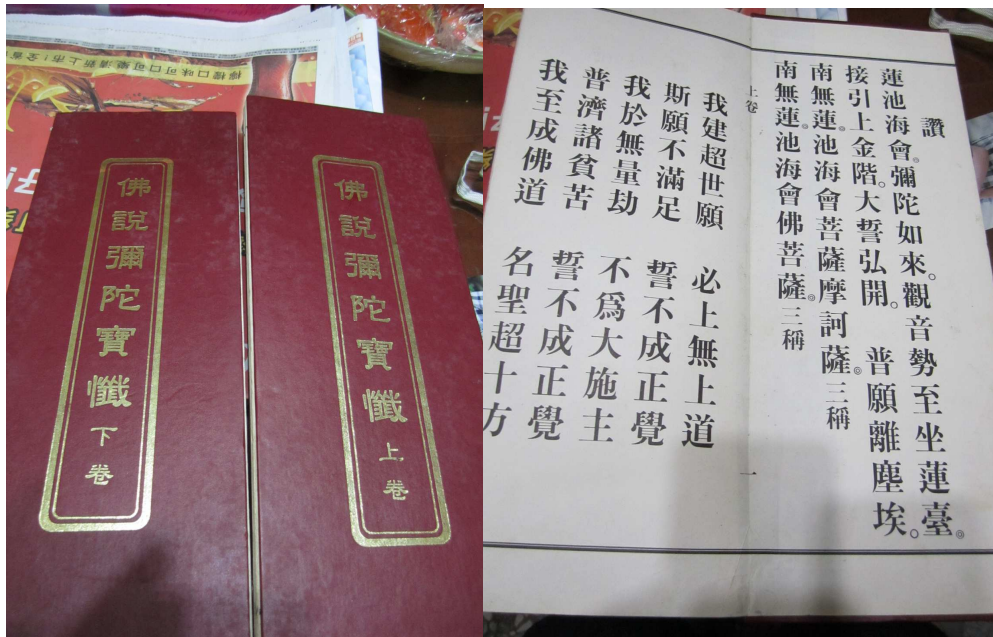 檸檬口味可口可樂清新上市！全新
佛說彌陀寶懺
下卷
佛說彌陀寶懺
上卷
讚
蓮池海會。彌陀如來。觀音勢至坐蓮臺。
接引上金階。大誓弘開。 普願離塵埃。
南無蓮池海會菩薩摩訶薩。三稱
南無蓮池海會佛菩薩。三稱
上卷
一
我建超世願 必上無上道
斯願不滿足 誓不成正覺
我於無量劫 不為大施主
普濟諸貧苦 誓不成正覺
我至成佛道 名聖超十方